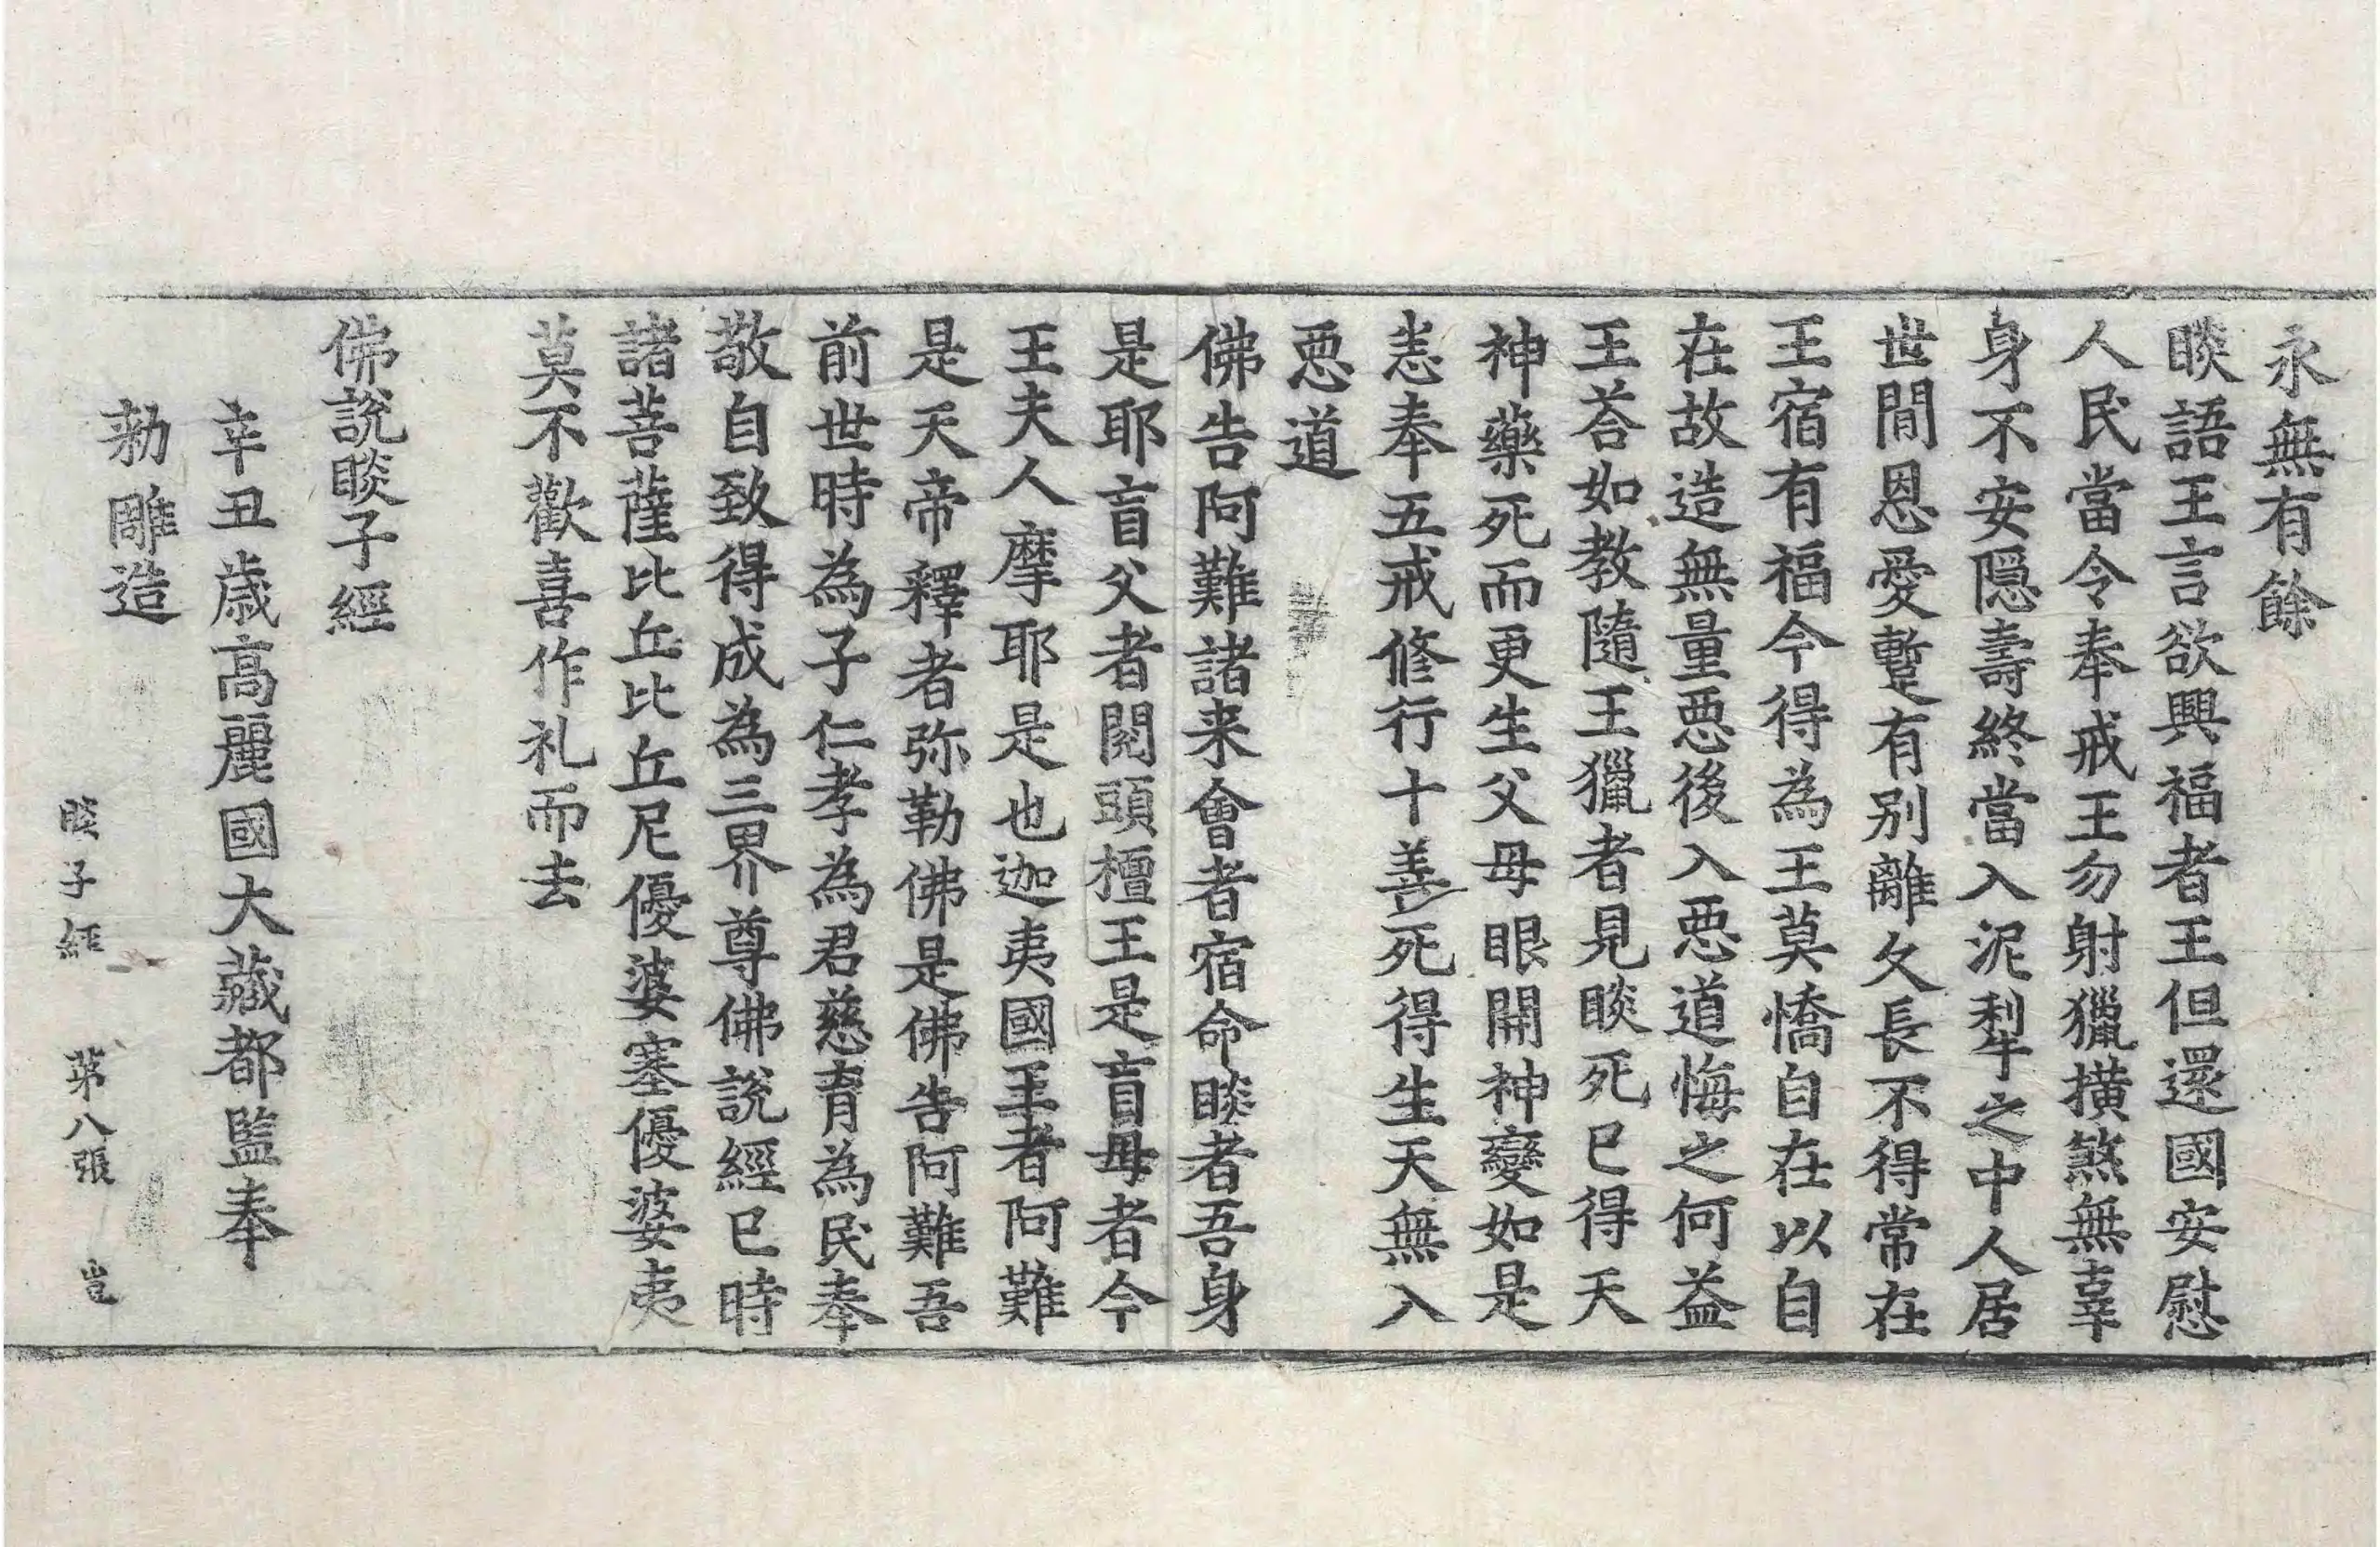 永無有餘
睒語王言欲興福者王但還國安慰
人民當令奉戒王勿射獵撗煞無辜
身不安隱壽終當入泥犁之中人居
世間恩愛蹔有别離久長不得常在
王宿有福今得為王莫憍自在以自
在故造無量惡後入惡道悔之何益
王荅如教隨王獵者見睒死已得天
神藥死而更生父母眼開神變如是
恚奉五戒修行十善死得生天無入
惡道
佛告阿難諸来會者宿命睒者吾身
是耶盲父者閱頭檀王是盲母者今
王夫人摩耶是也迦夷國王者阿難
是天帝釋者弥勒佛是佛告阿難吾
前世時為子仁孝為君慈育為民奉
敬自致得成為三界尊佛說經已時
諸菩薩比丘比丘尼優婆塞優婆夷
莫不歡喜作礼而去
佛說睒子經
辛丑歲高麗國大藏都監奉
勑雕造
睒子經 第八張 豈